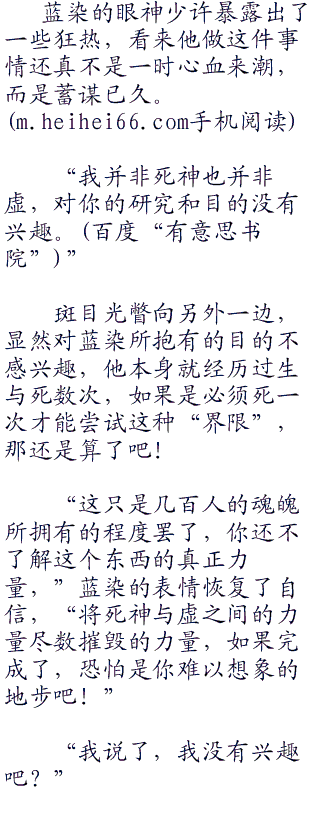 蓝染的眼神少许暴露出了
一些狂热，看来他做这件事
情还真不是一时心血来潮，
而是蓄谋已久。
(m.heihei66.com手机阅读)
“我并非死神也并非
虚，对你的研究和目的没有
兴趣。(百度“有意思书
院”)”
斑目光瞥向另外一边，
显然对蓝染所抱有的目的不
感兴趣，他本身就经历过生
与死数次，如果是必须死一
次才能尝试这种“界限”，
那还是算了吧！
“这只是几百人的魂魄
所拥有的程度罢了，你还不
了解这个东西的真正力
量，”蓝染的表情恢复了自
信，“将死神与虚之间的力
量尽数摧毁的力量，如果完
成了，恐怕是你难以想象的
地步吧！”
“我说了，我没有兴趣
吧？”